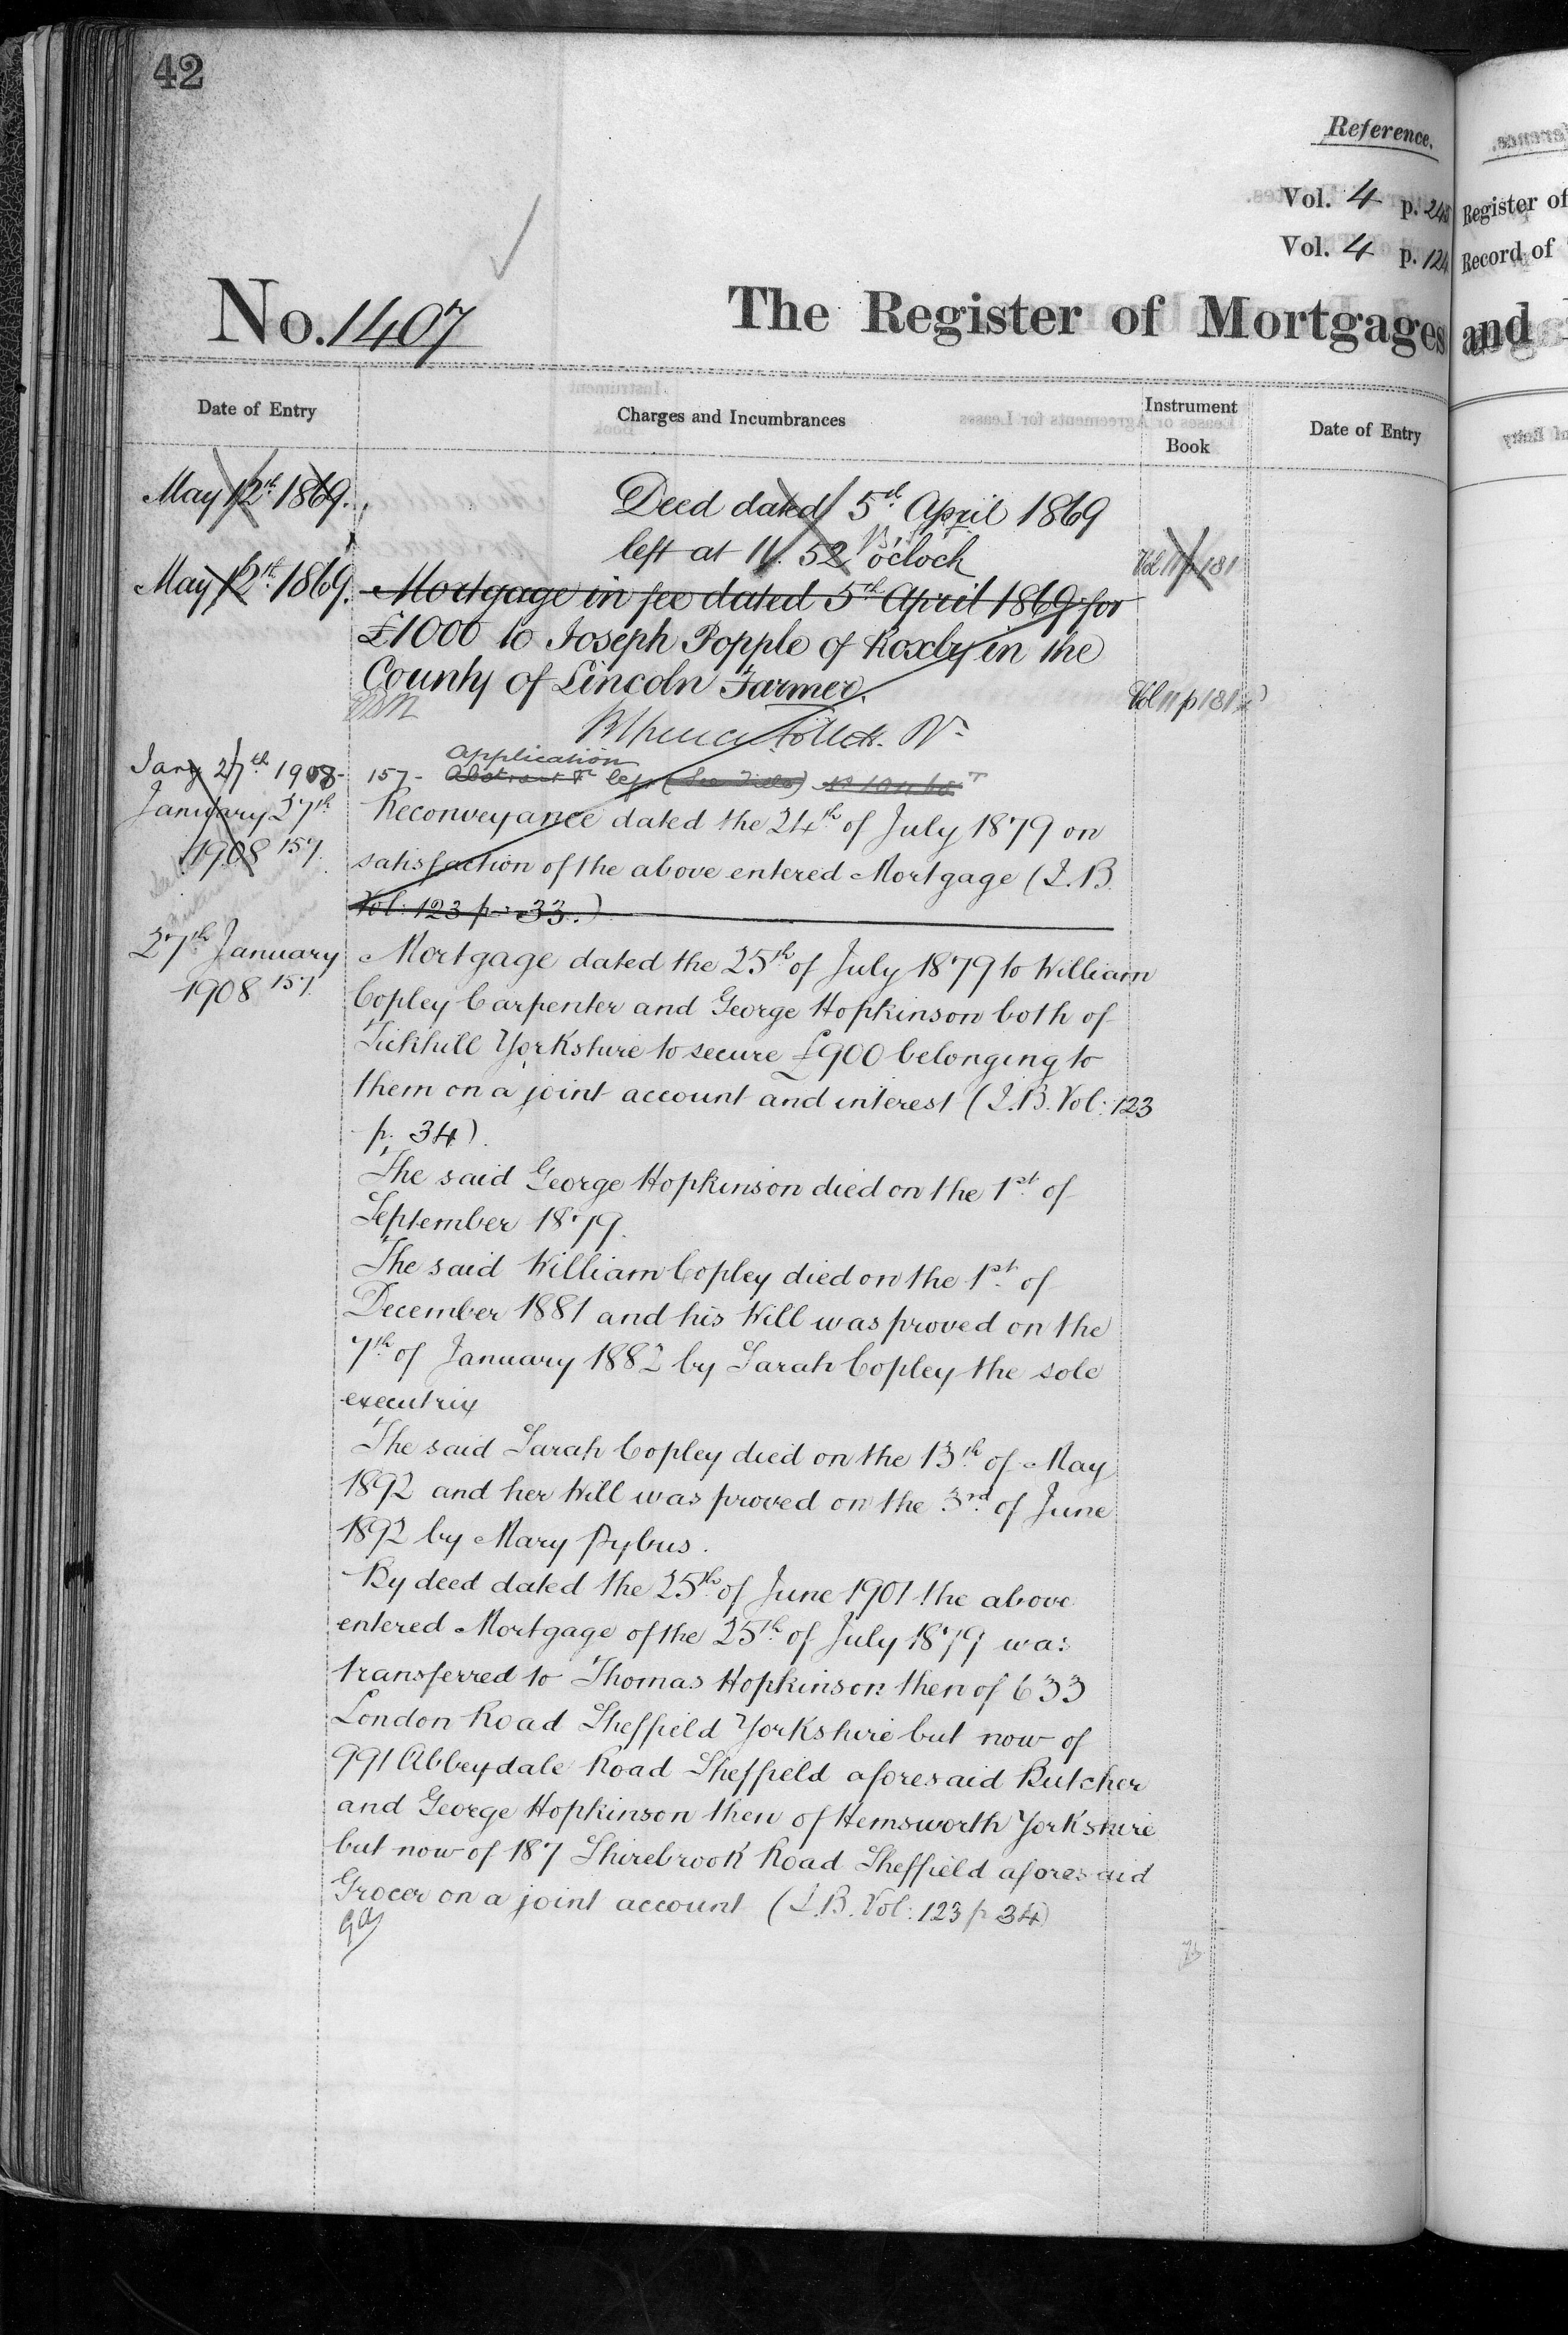 42
Reference.
Vol. 4 p. 248
Register of
Vol. 4 p. 124
Record of
No. 1407
The Register of Mortgages and
Date of Entry
Charges and Incumbrances
Instrument Book
Date of Entry
May 12th 1869.
Deed dated 5th April 1869
left at 11. 52 o'clock
Vol 11 p 181
May 12th 1869.
Mortgage in fee dated 5th April 1869 for
£1000 to Joseph Popple of Roxby in the
County of Lincoln Farmer.
Vol 11 p 181
Jany 27th 1908-
157- Application
left
January 27th
1908 157.
Reconveyance dated the 24th of July 1879 on
satisfaction of the above entered Mortgage (I.B.
Vol: 123 p: 33.)
27th January
1908 157.
Mortgage dated the 25th of July 1879 to William
Copley Carpenter and George Hopkinson both of
Tickhill Yorkshire to secure £900 belonging to
them on a joint account and interest (I.B. Vol: 123
p. 34).
The said George Hopkinson died on the 1st of
September 1879.
The said William Copley died on the 1st of
December 1881 and his Will was proved on the
7th of January 1882 by Sarah Copley the sole
executrix
The said Sarah Copley died on the 13th of May
1892 and her Will was proved on the 3rd of June
1892 by Mary Pybus.
By deed dated the 25th of June 1901 the above
entered Mortgage of the 25th of July 1879 was
transferred to Thomas Hopkinson then of 633
London Road Sheffield Yorkshire but now of
991 Abbeydale Road Sheffield aforesaid Butcher
and George Hopkinson then of Hemsworth Yorkshire
but now of 187 Shirebrook Road Sheffield aforesaid
Grocer on a joint account (I.B. Vol: 123 p 34)